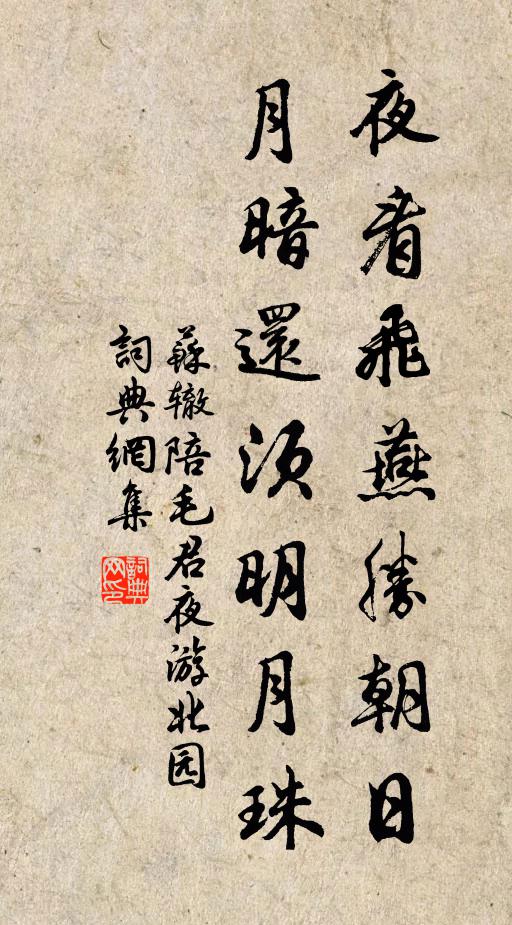 夜看飛燕勝朝日
月暗還須明月珠
蘇辙陪毛君夜游北园
詞典網集
詞典
网印